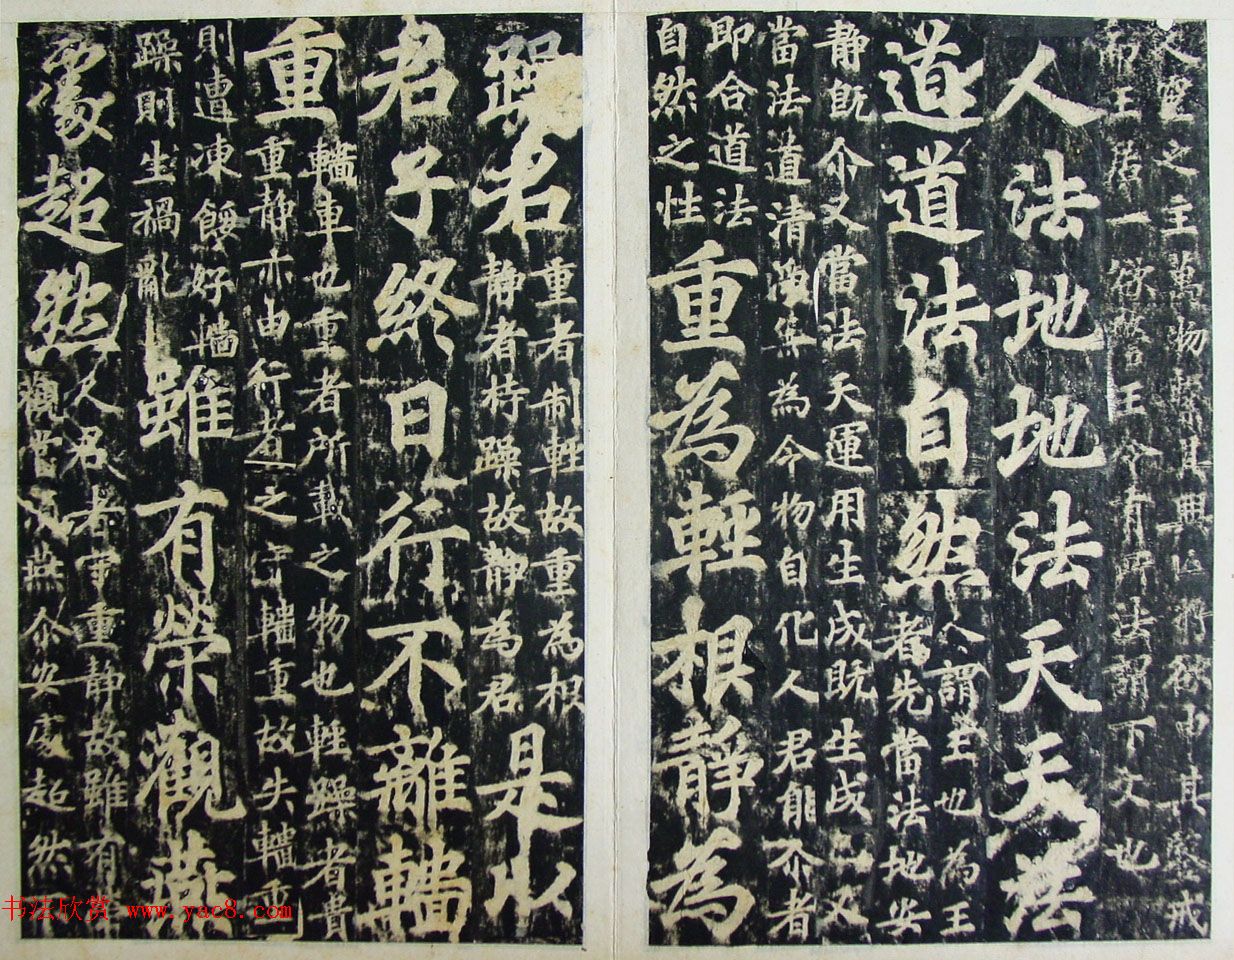 人靈之主萬物繫其興亡將欲申其鑒戒
而王居一欲警王令有所法謂下文也
人法地地法天天法
道道法自然
人謂王也為王
者先當法地安
靜既尒又當法天運用生成既生成已又
當法道清淨無為令物自化人君能尒者
即合道法
自然之性
重為輕根靜為
躁君
重者制輕故重為根
靜者持躁故靜為君
是以
君子終日行不離輜
重
輜車也重者所載之物也輕躁者貴
重靜亦由行者之守輜重故失輜重
則遭凍餒好輕
躁則生禍亂
雖有榮觀燕
處超然
人君者守重靜故雖有
觀當須燕尒安處超然
书法欣赏 www.yac8.com